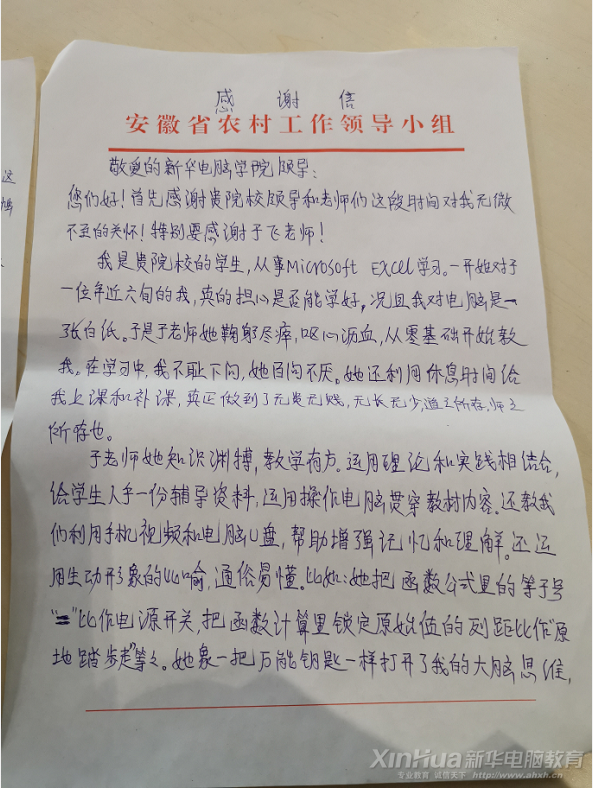 感谢信
安徽省农村工作领导小组
敬爱的新华电脑学院领导：
您们好！首先感谢贵院校领导和老师们这段时间对我无微
不至的关怀！特别要感谢于飞老师！
我是贵院校的学生，从事Microsoft Excel学习。一开始对于
一位年近六旬的我，真的担心是否能学好，况且我对电脑是一
张白纸。于是于老师她鞠躬尽瘁，呕心沥血，从零基础开始教
我。在学习中，我不耻下问，她百问不厌。她还利用休息时间给
我上课和补课，真正做到了无贵无贱，无长无少，道之所存，师之
所存也。
于老师她知识渊博，教学有方。运用理论和实践相结合，
给学生人手一份辅导资料，运用操作电脑贯穿教材内容。还教我
们利用手机视频和电脑U盘，帮助增强记忆和理解。还运
用生动形象的比喻，通俗易懂。比如：她把函数公式里的等于号
"="比作电源开关，把函数计算里锁定原始值的列距比作"原
地踏步走"等々。她象一把万能钥匙一样打开了我的大脑思维，
这
XinHua新华电脑教育
专业教育 诚信天下 http://www.ahxh.cn